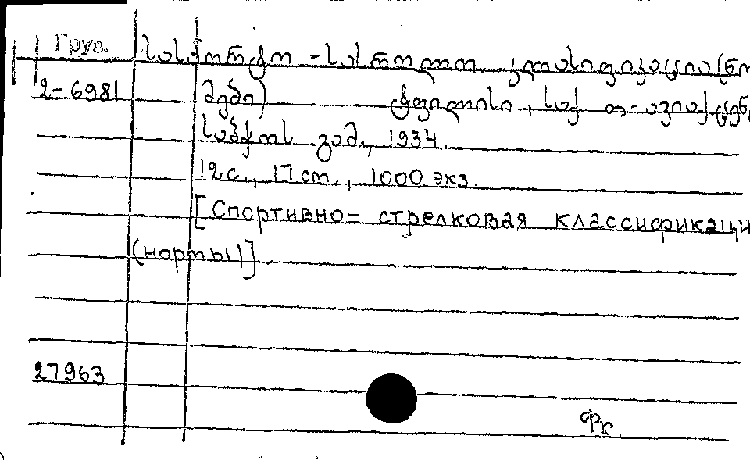 Груз.
სასპორტო - სასროლო კლასიფიკაცია (ნო
2-6981 მები) ტფილისი, საქ
საბჭოს გამ., 1934.
12с., 17 ст., 1000 экз.
[Спортивно= стрелковая классификаци
(нормы)].
27963